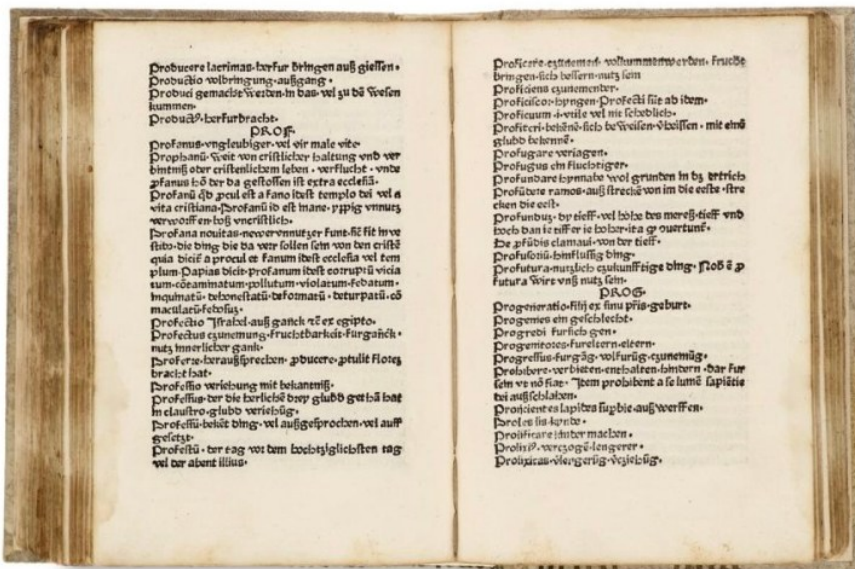 Producere lacrimas·herfur bringen auß giessen·
Productio volbringung·außgang·
Produci gemacht werden·in das·vel zu dē wesen
kummen·
Productꝰ·herfurbracht·
PROF·
Profanus·vngleubiger·vel vir male vite·
Prophanū·weit von cristlicher haltung vnd ver
bintniß oder cristenlichem leben·verflucht·vnde
ꝓfanus hō der da gestossen ist extra ecclesiā·
Profanū qd ꝓcul est a fano idest templo dei vel a
vita cristiana·Profanū id est inane·yppig vnnutz
verworffen·boß vncristlich·
Profana nouitas·newe vnnutzer funt·sicut fit in ve
stibꝰ·die ding die da verr sollen sein von den cristē
quia dicit a procul et fanum idest ecclesia vel tem
plum·Papias dicit·profanum idest corruptū vicia
tum·cōtaminatum·pollutum·violatum·fedatum·
inquinatū·dehonestatū·deformatū·deturpatū·cō
maculatū·fedosuz·
Profectio Israhel·auß ganck ex egipto·
Profectus czunemung·fruchtbarkeit·furganck·
nutz innerlicher gank·
Proferre·heraußsprechen·ꝓducere·ꝓtulit flores
bracht hat·
Professio veriehung mit bekantniß·
Professus·der die herlichē drey glubd gethā hat
in claustro·glubd veriehūg·
Professū·bekēt ding·vel außgesprochen·vel auff
gesetzt·
Profestū·der tag vor dem hochtziglichsten tag
vel der abent illius·
Proficere·czunemen·volkummenwerden·frucht
bringen·sich bessern·nutz sein
Proficiens czunemender·
Proficiscor·hyngen·Profecti sūt ab idem·
Proficuum·i·vtile vel nit schedlich·
Profiteri·bekēnē·sich beweisen·vheissen·mit einē
glubd bekennē·
Profugare veriagen·
Profugus ein fluchtiger·
Profundare hynnabe wol grunden in dz ertrich
Profūdere ramos·auß streckē von im die este·stre
cken die est·
Profunduz·dy tieff·vel hohe des merß·tieff vnd
hoch dan ie tiffer ie hoher·
De ꝓfūdis clamaui·von der tieff·
Profusoriū·hinflussig ding·
Profutura·nutzlich czukunfftige ding·Nō ē ꝓ
futura wirt vnß nutz sein·
PROG·
Progeneratio·filij ex sinu pr̄is·geburt·
Progenies ein geschlecht·
Progredi fursich gen·
Progenitores·fureltern·eltern·
Progressus·furgāg·volfurūg·czunemūg·
Prohibere·verbieten·enthalten·hindern·dar fur
sein vt nō fiat·Item prohibent a se lumē sapiētie
dei außschlahen·
Proijcientes lapides·außwerffen·
Proles lis·kynde·
Prolificare kinder machen·
Prolixꝰ·verczogē·lengerer·
Prolixitas·vlengerūg·vcziehūg·